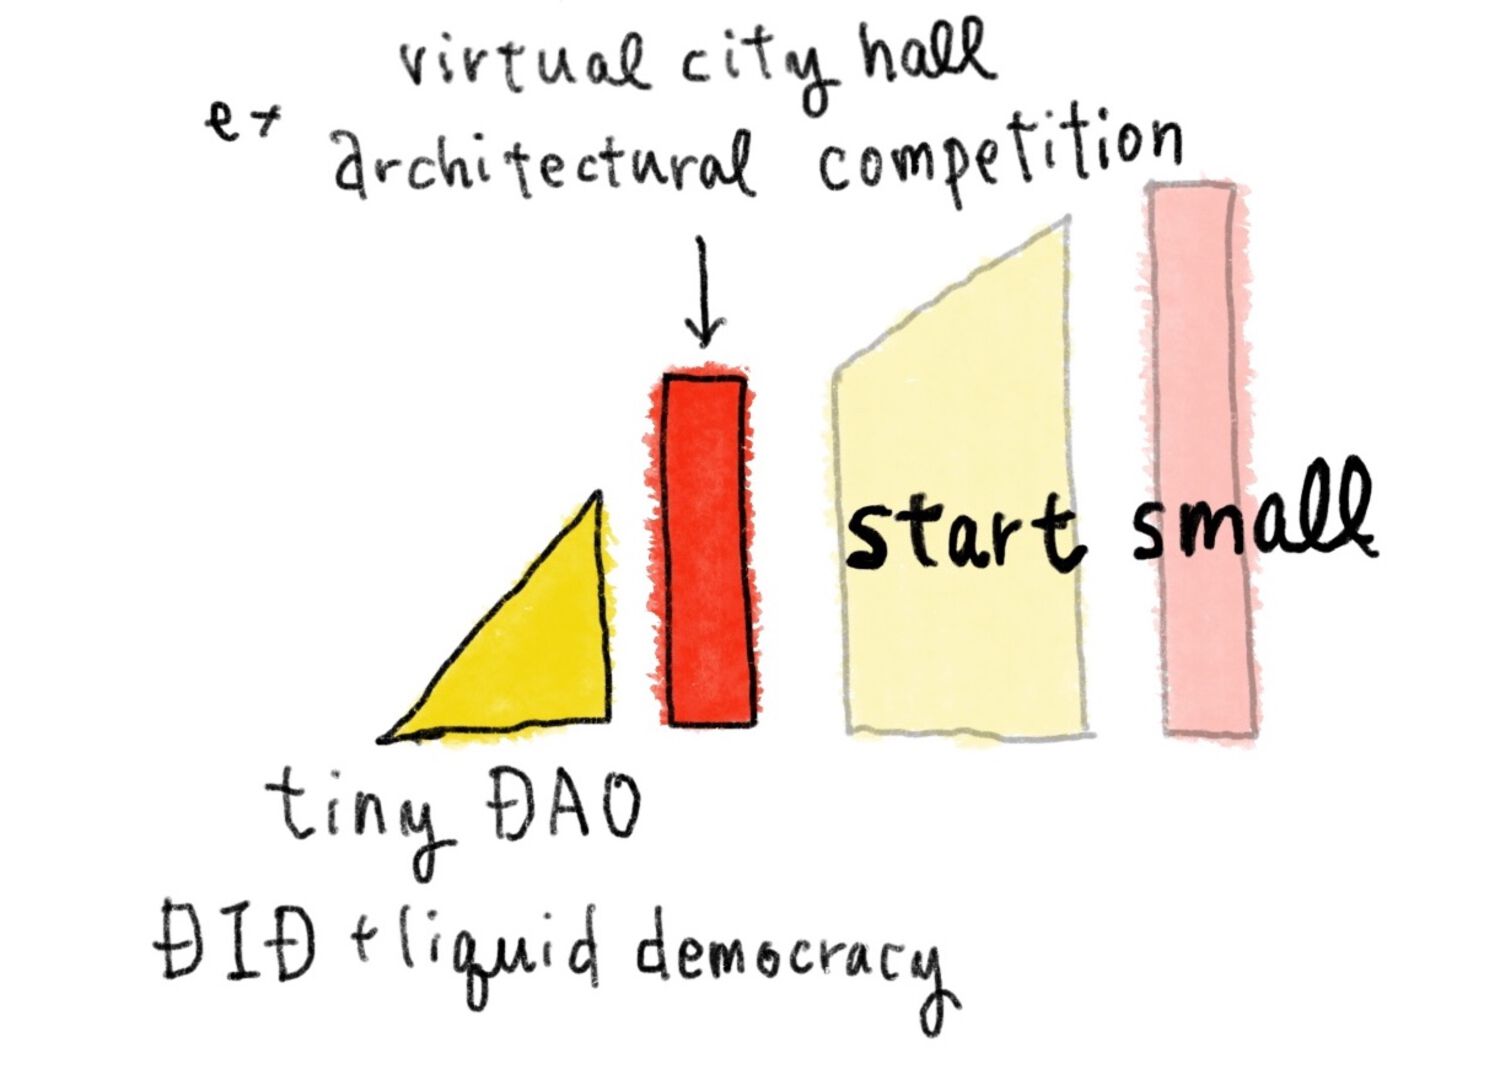 virtual city hall
ex
architectural competition
start small
tiny ĐAO
ĐIĐ + liquid democracy